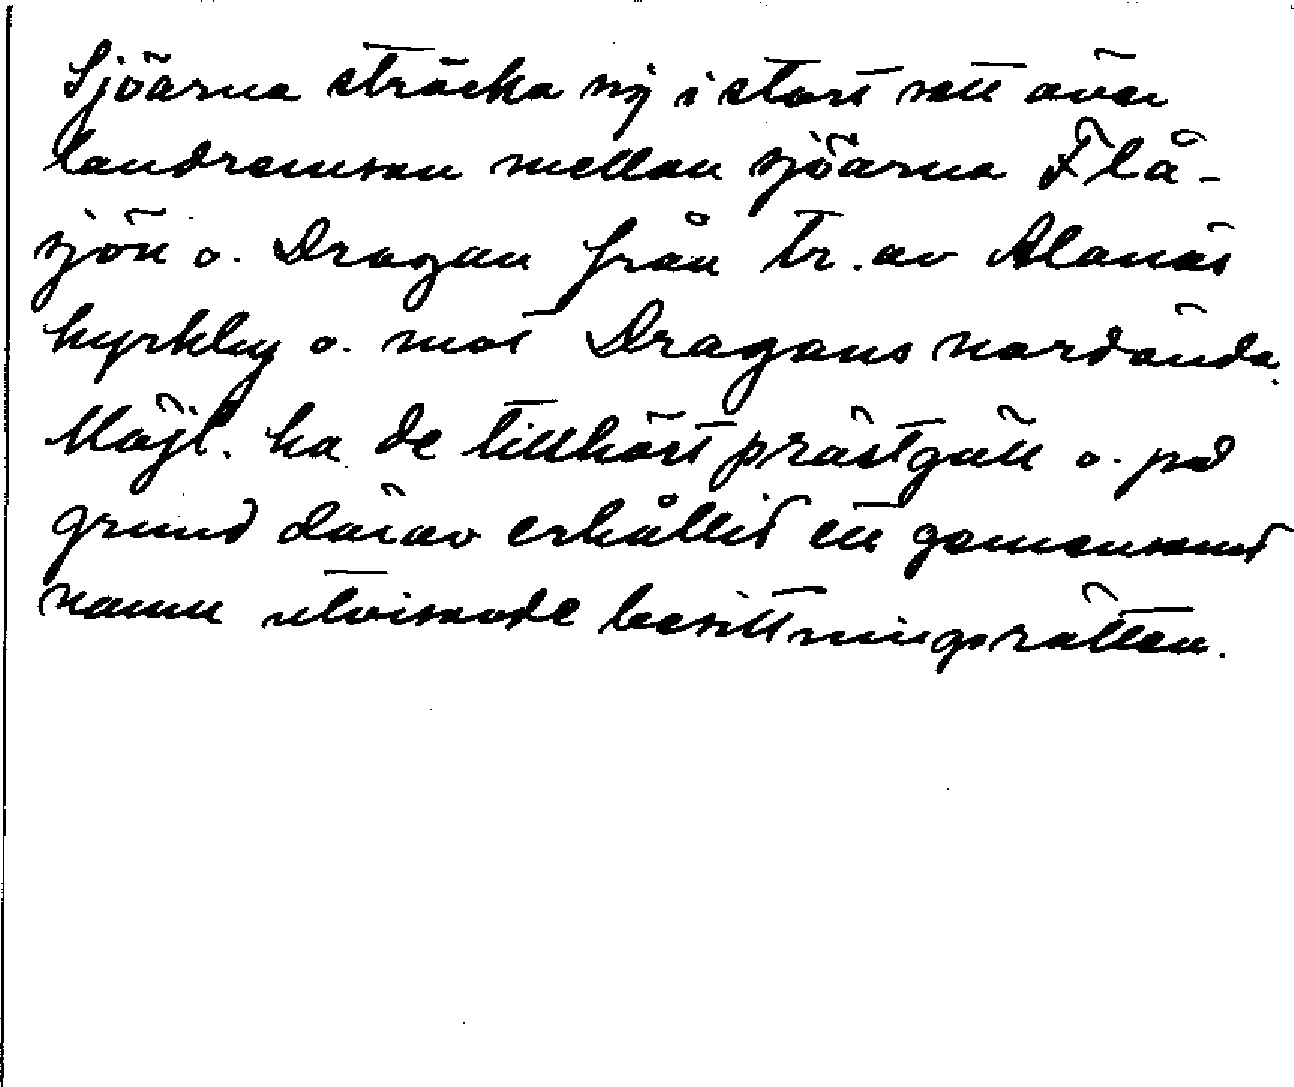 Sjöarna sträcka sig i stort sett över
landremsan mellan sjöarna Flå-
sjön o. Dragan från tr. av Alanäs
kyrkby o. mot Dragans nordända.
Möjl. ha de tillhört prästgäll o. på
grund därav erhållit ett gemensamt
namn utvisande besittningsrätten.